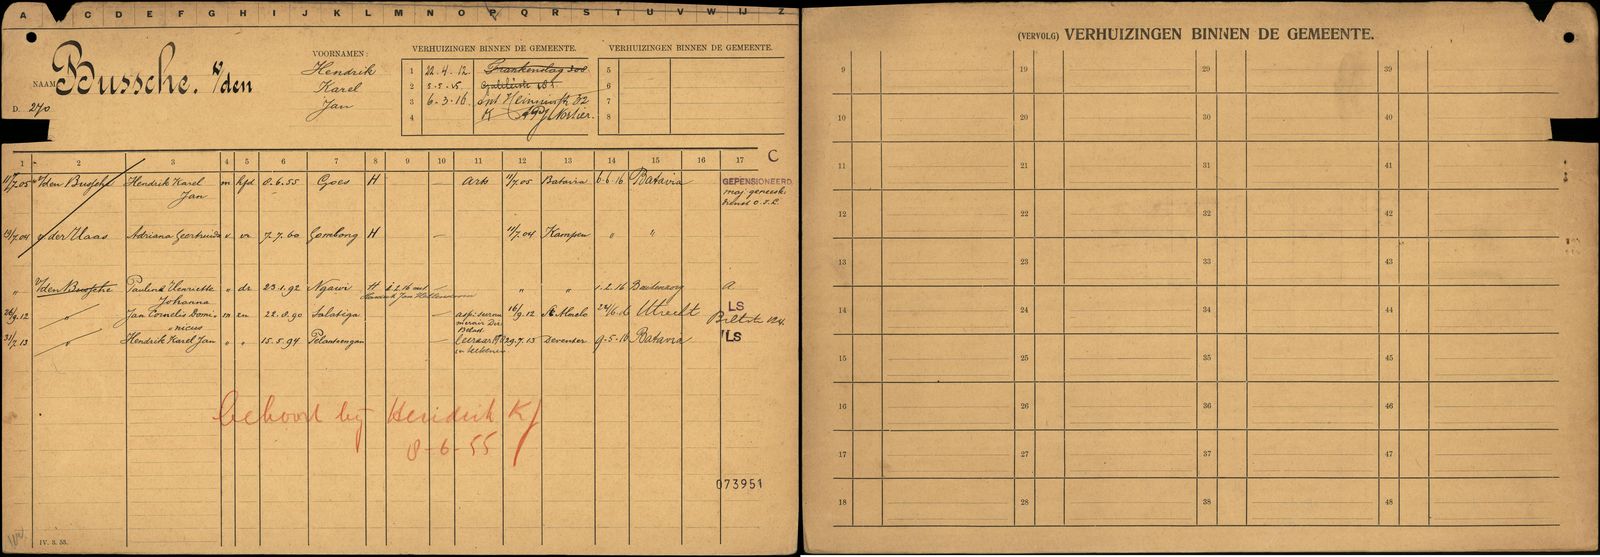 A B C D E F G H I J K L M N O P Q R S T U V W X IJ Z
NAAM Bussche. v/den
D. 270
VOORNAMEN:
Hendrik
Karel
Jan
VERHUIZINGEN BINNEN DE GEMEENTE.
1 22.4.12.
2
3 6-3-16. 32
4
VERHUIZINGEN BINNEN DE GEMEENTE.
5
6
7
8
1 2 3 4 5 6 7 8 9 10 11 12 13 14 15 16 17 C
11/7.05 v/den Bussche Hendrik Karel m hfd 8.6.55 Goes H — — Arts 11/7.05 Batavia 6-6.16 Batavia GEPENSIONEERD
Jan maj. geneesk.
dienst O.I.L.
19/7.04 v/der Haas Adriana Geertruida v. vr 7.7.60 Gombong H — 11/7.04 Kampen " "
" v/den Bussche Paulina Henriette " dr 23.1.92 Ngawi H — " " 1.2.16 Buitenzorg A
Johanna
26/9.12 " Jan Cornelis Domi- m zn 22.8.90 Salatiga — 16/9.12 Utrecht LS
nicus
31/7.13 " Hendrik Karel Jan " " 15.5.94 Pelantoengan — leeraar 29.7.13 Deventer 9-5-16 Batavia LS
behoort bij Hendrik KJ
8-6-55
073951
IV. 3. 53.
(VERVOLG) VERHUIZINGEN BINNEN DE GEMEENTE.
9 19 29 39
10 20 30 40
11 21 31 41
12 22 32 42
13 23 33 43
14 24 34 44
15 25 35 45
16 26 36 46
17 27 37 47
18 28 38 48